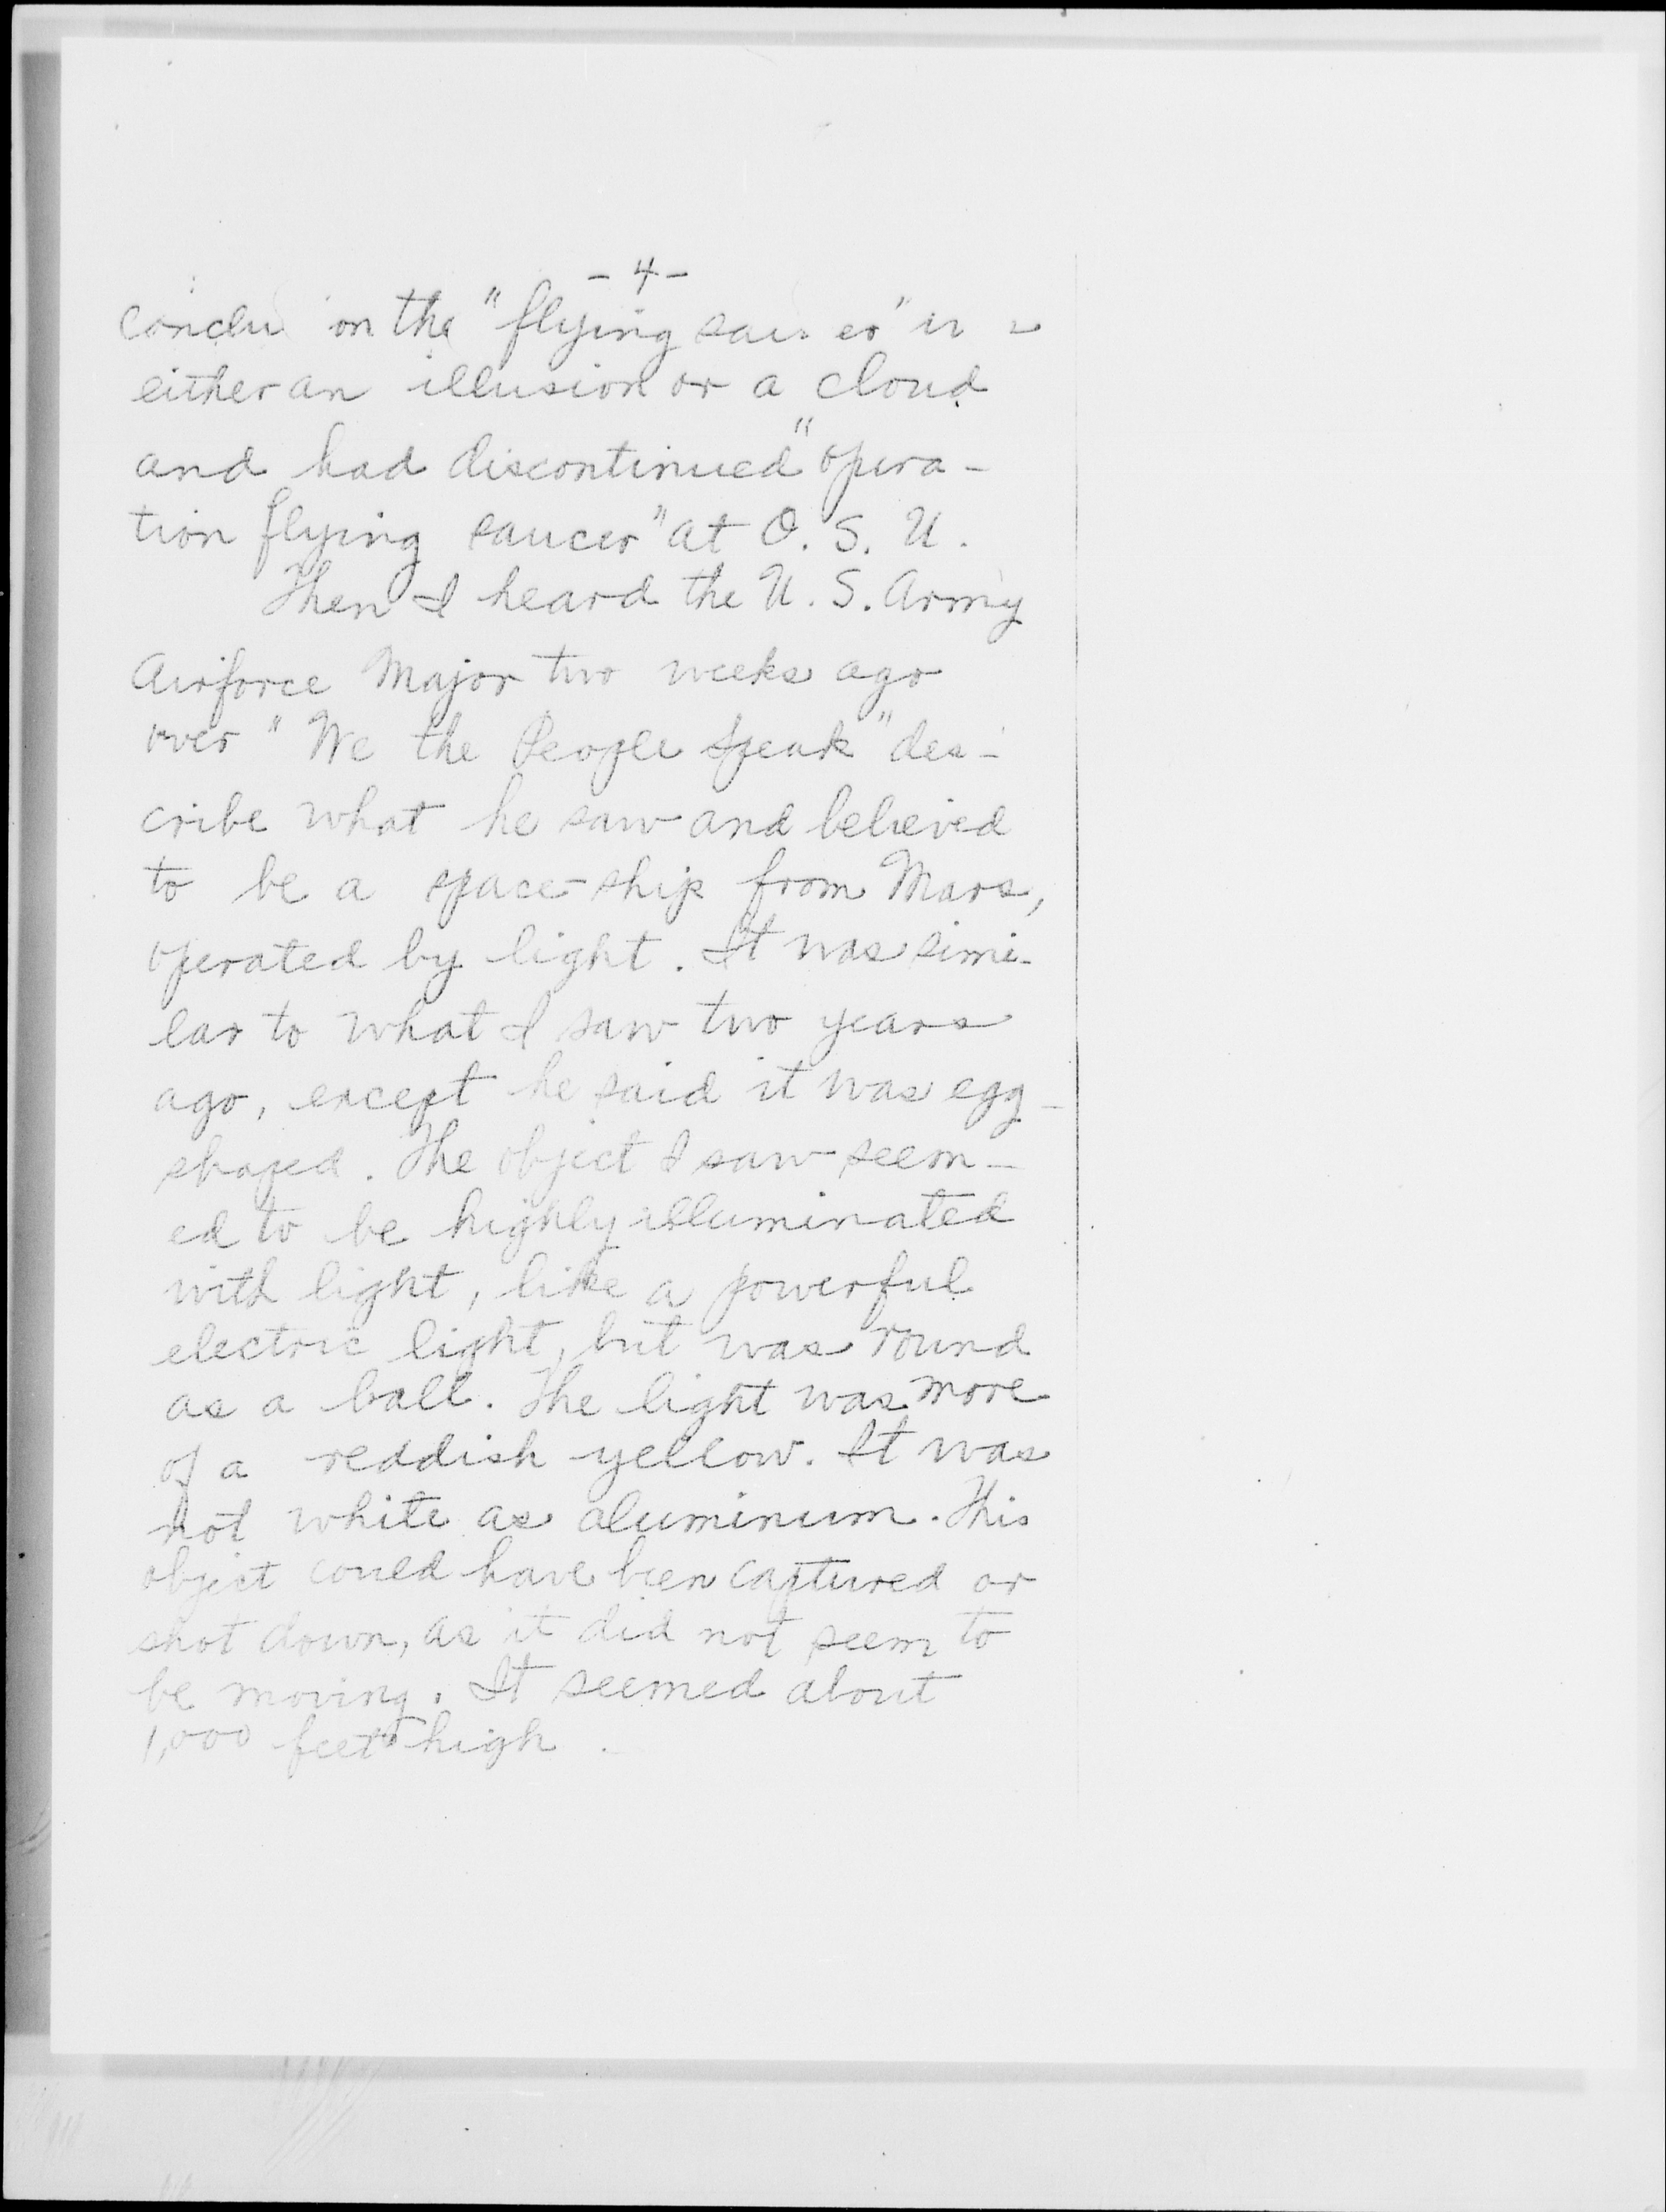 - 4 -
conclu on the "flying sau er"
either an illusion or a cloud
and had discontinued "opera-
tion flying saucer" at O. S. U.
Then I heard the U. S. Army
Airforce Major two weeks ago
over "We the People Speak" des-
cribe what he saw and believed
to be a space-ship from Mars,
operated by light. It was simi-
lar to what I saw two years
ago, except he said it was egg-
shaped. The object I saw seem-
ed to be highly illuminated
with light, like a powerful
electric light, but was round
as a ball. The light was more
of a reddish yellow. It was
not white as aluminum. This
object could have been captured or
shot down, as it did not seem to
be moving. It seemed about
1,000 feet high.